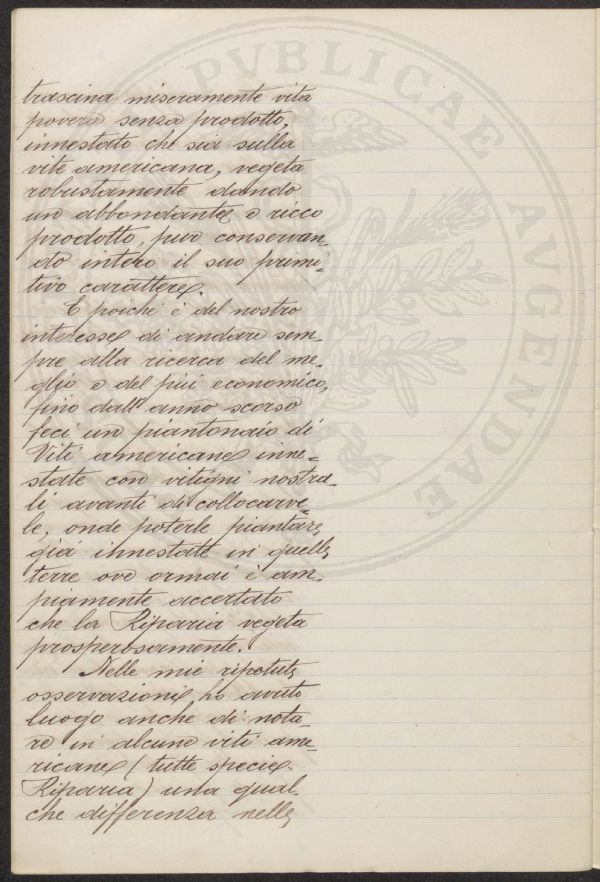 PVBLICAE AVGENDAE
trascina miseramente vita
povera senza prodotto,
innestato che sia sulla
vite americana, vegeta
robustamente dando
un abbondante e ricco
prodotto, pur conservan-
do intero il suo primi-
tivo carattere.
E poichè è del nostro
interesse di andare sem-
pre alla ricerca del me-
glio e del più economico,
fino dall'anno scorso
feci un piantonaio di
Viti americane inne-
state con vitigni nostra-
li avanti di collocarve-
le, onde poterle piantare
già innestate in quelle
terre ove ormai è am-
piamente accertato
che la Riparia vegeta
prosperosamente.
Nelle mie ripetute
osservazioni ho avuto
luogo anche di nota-
re in alcune viti ame-
ricane (tutte specie
Riparia) una qual-
che differenza nelle